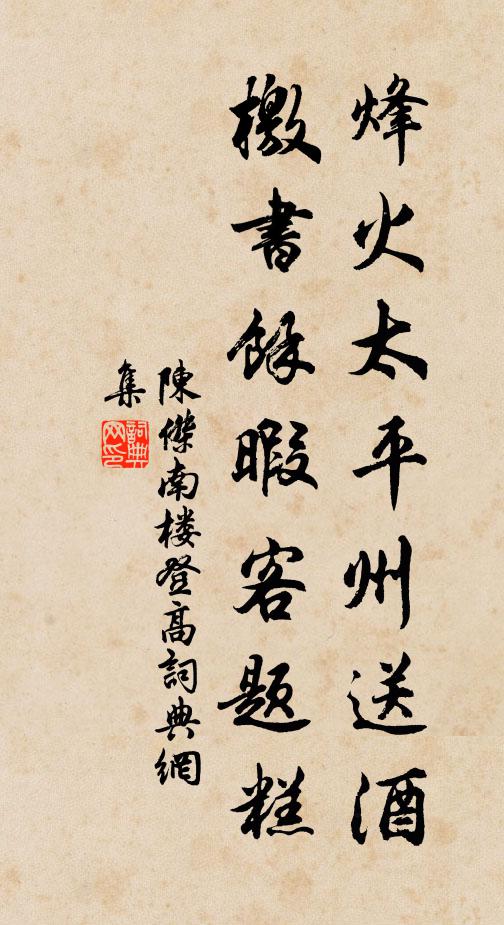 烽火太平州送酒
檄書餘暇客題糕
陳傑南楼登高詞典網
集
詞典网印